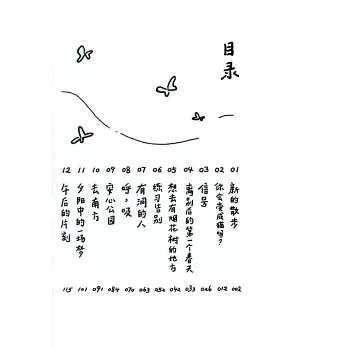 目录
一
01 新的散步 002
02 你会变成猫吗？ 012
03 信号 026
04 离别后的第一个春天 033
05 想去有烟花树的地方 042
06 练习告别 052
07 有洞的人 063
08 呼，吸 070
09 安心公园 084
10 去南方 091
11 夕阳中的一场梦 101
12 午后的片刻 115